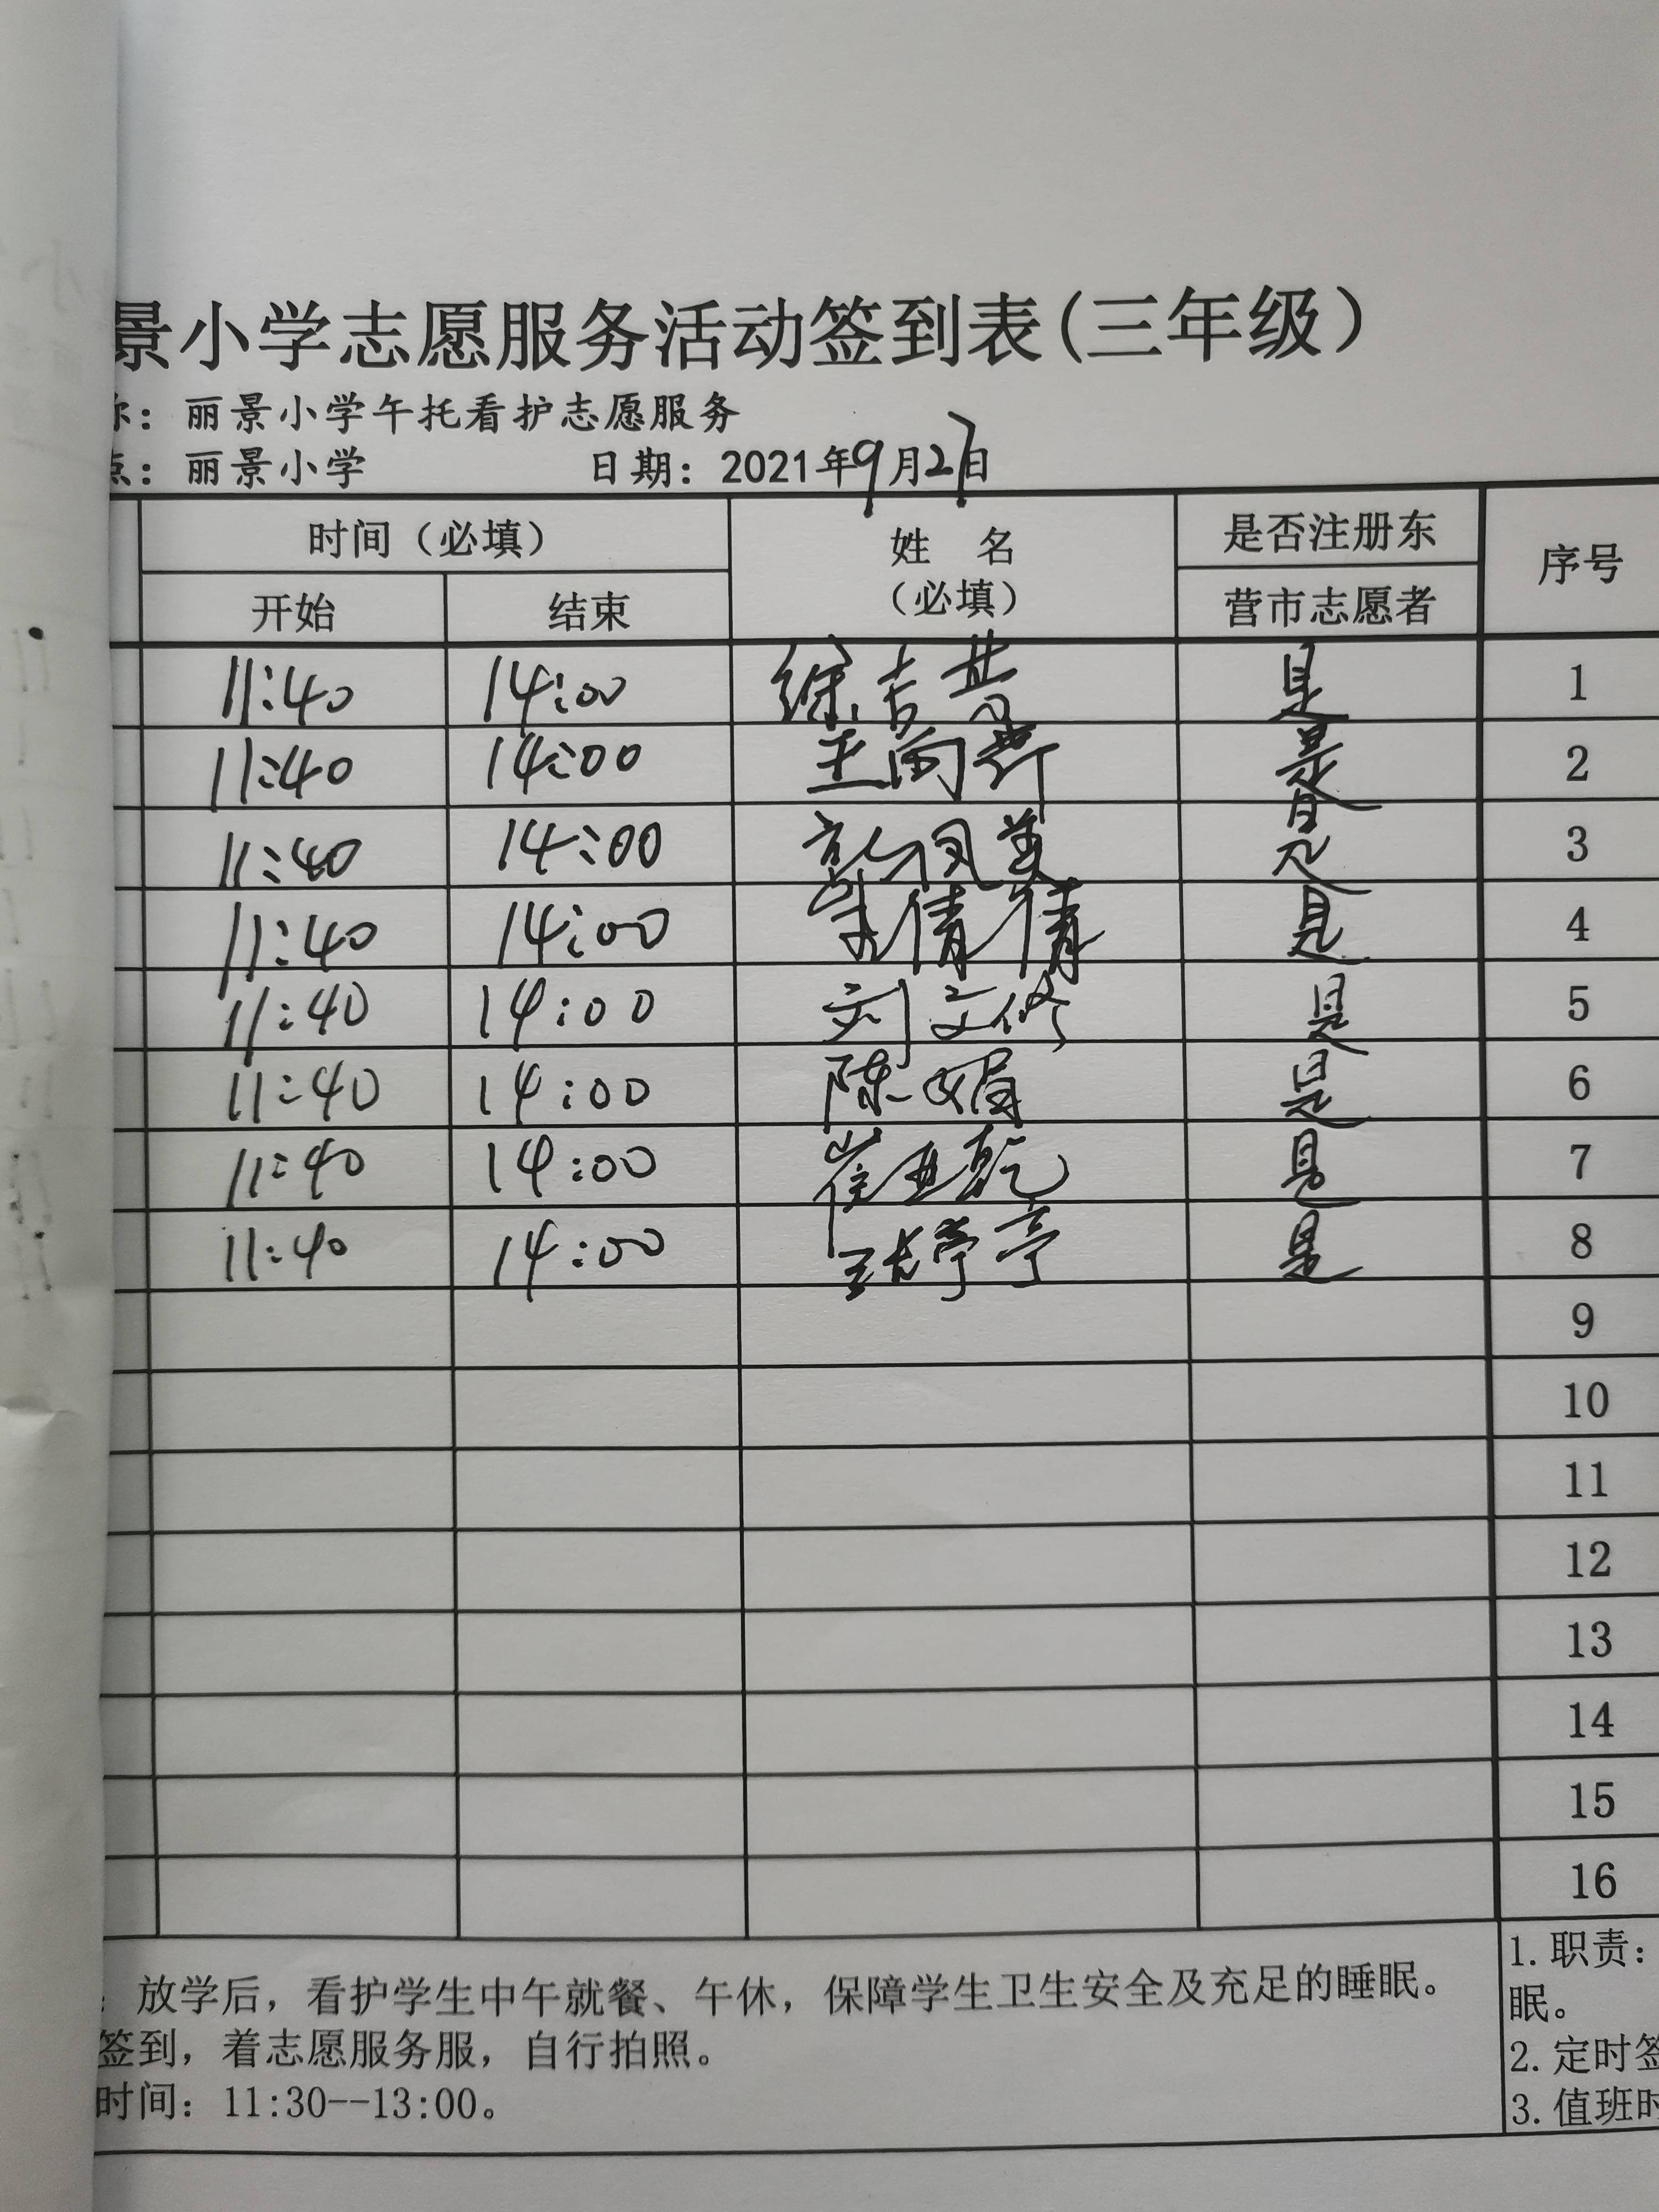 景小学志愿服务活动签到表(三年级)
称：丽景小学午托看护志愿服务
点：丽景小学 日期：2021年9月27日
时间（必填） 姓 名（必填） 是否注册东营市志愿者 序号
开始 结束
11:40 14:00 徐吉 是 1
11:40 14:00 王 是 2
11:40 14:00 彭凤美 是 3
11:40 14:00 宋倩倩 是 4
11:40 14:00 刘文修 是 5
11:40 14:00 陈媚 是 6
11:40 14:00 崔亚乾 是 7
11:40 14:00 张亭亭 是 8
9
10
11
12
13
14
15
16
：放学后，看护学生中午就餐、午休，保障学生卫生安全及充足的睡眠。
签到，着志愿服务服，自行拍照。
时间：11:30--13:00。
1.职责：
眠。
2.定时签
3.值班时